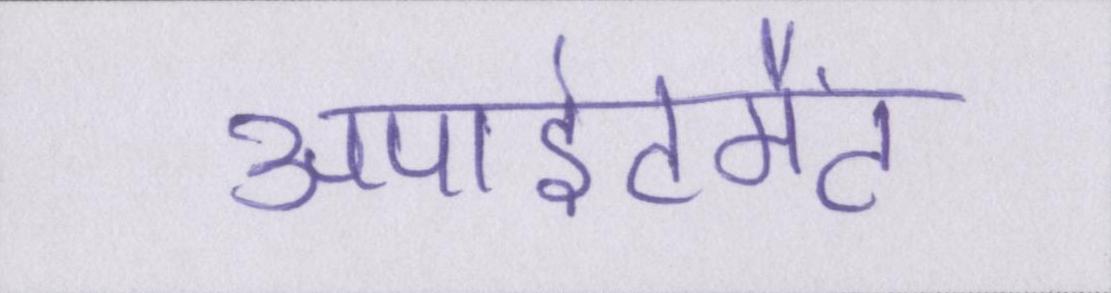 अपाईटमैंट